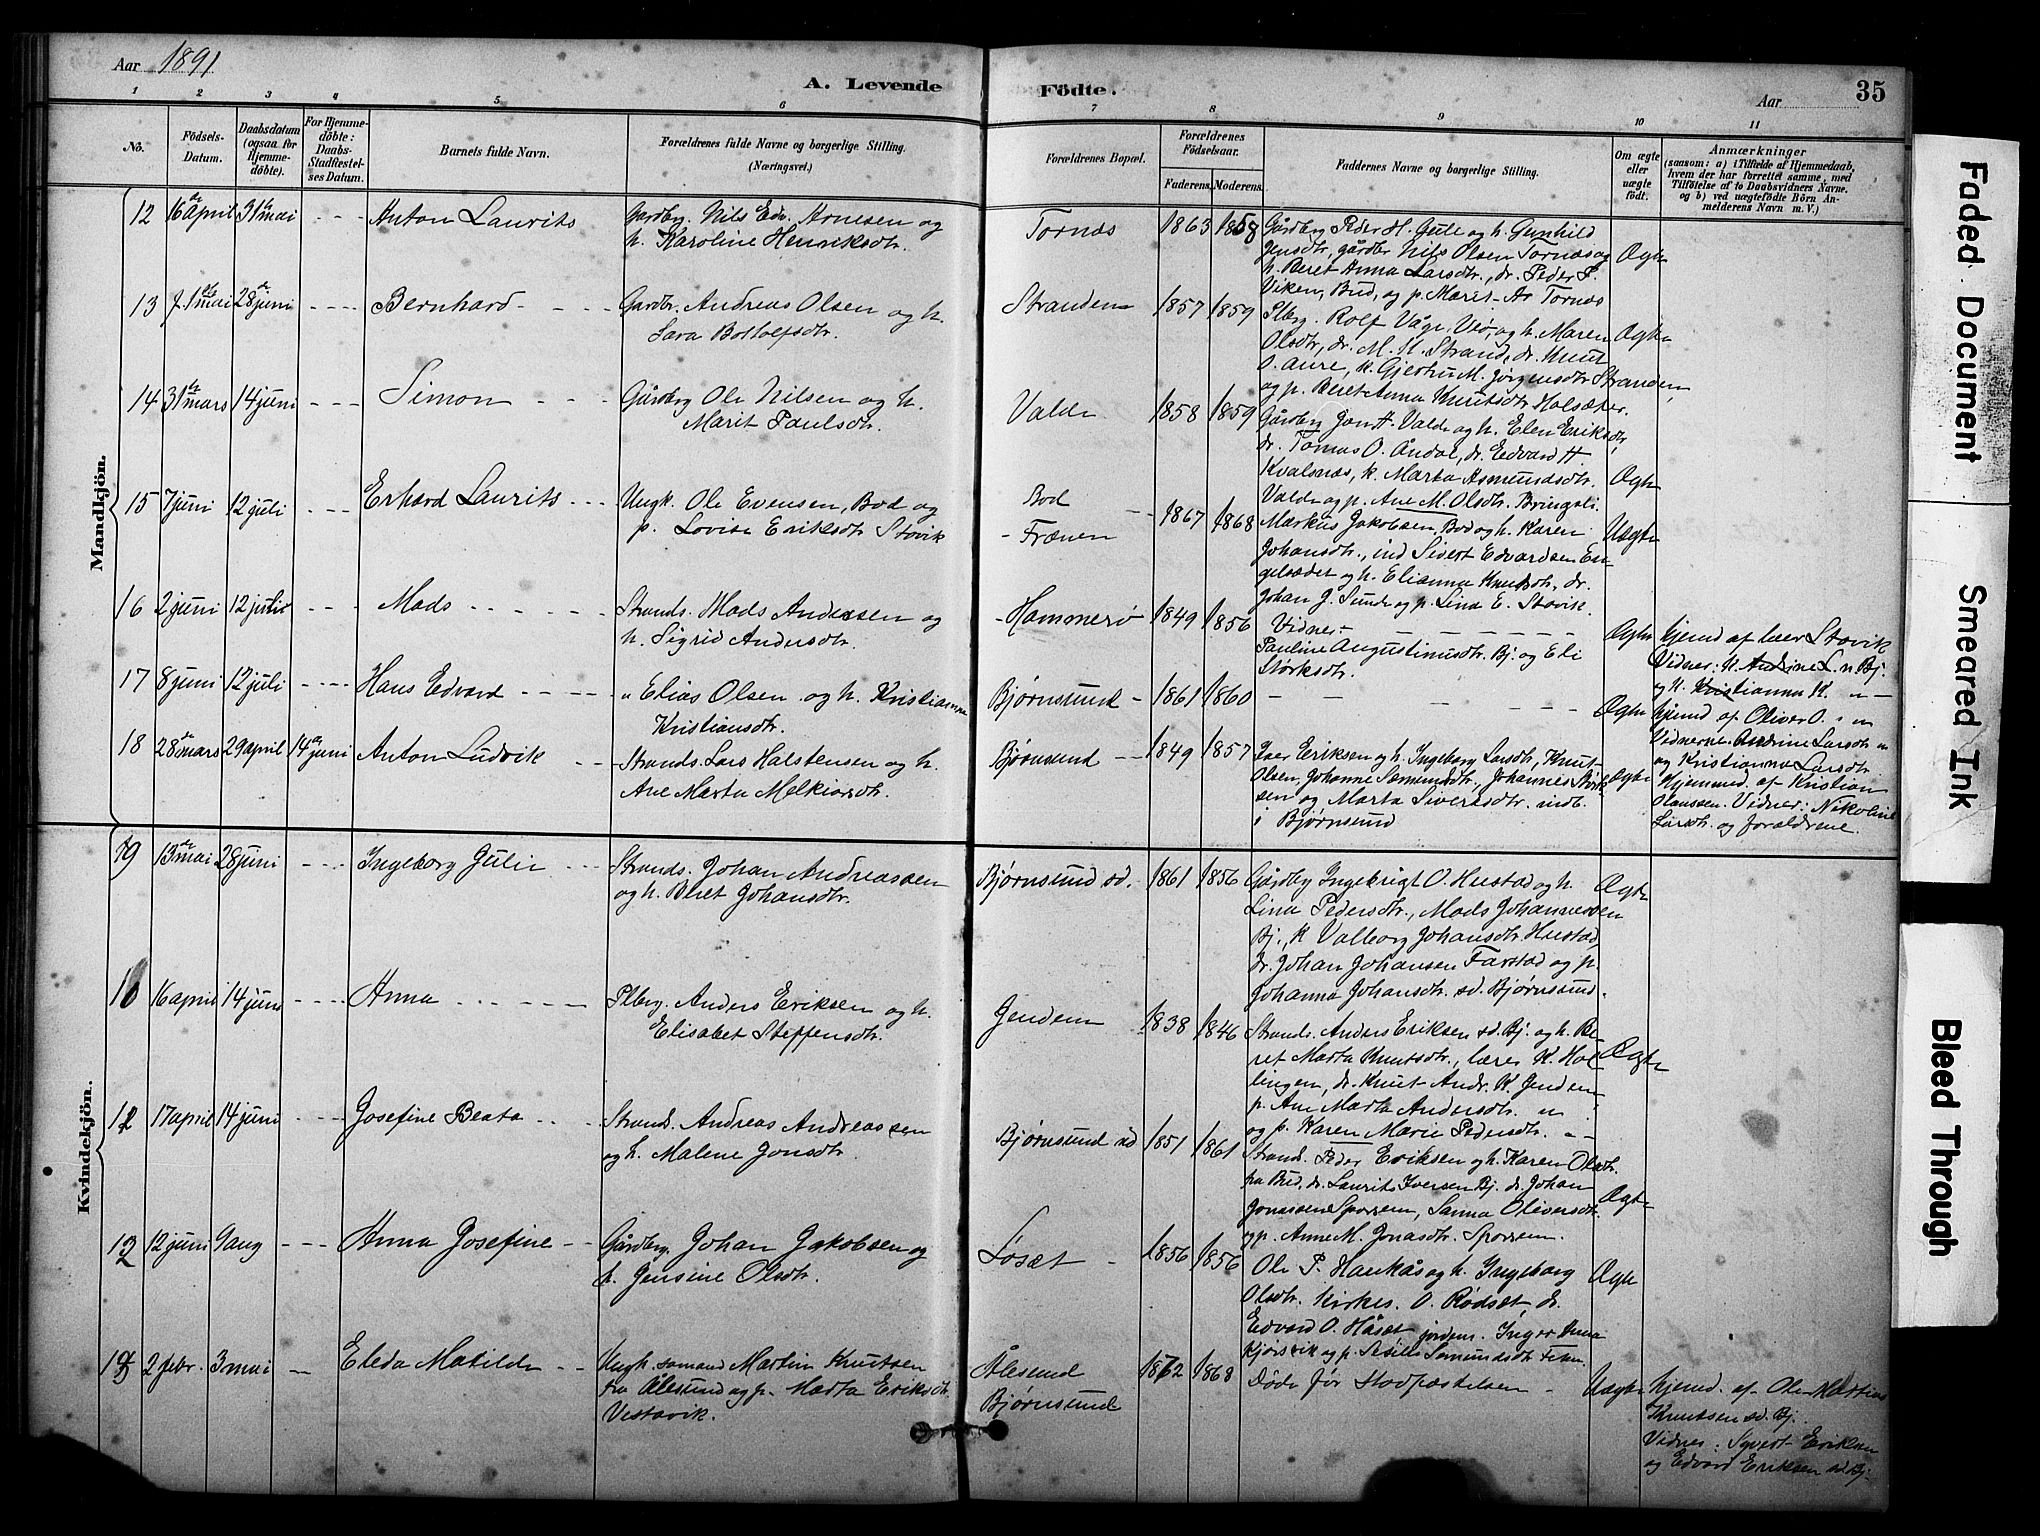 Aar 1891
A. Levende Fødte.
Aar 35
1 2 3 4 5 6 7 8 9 10 11
No.
Fødsels-Datum.
Daabsdatum (ogsaa for Hjemmedøbte).
For Hjemmedøbte: Daabs-Stadfæstelses Datum.
Barnets fulde Navn.
Forældrenes fulde Navne og borgerlige Stilling.
(Næringsvei.)
Forældrenes Bopæl.
Forældrenes Fødselsaar.
Faderens. Moderens.
Faddernes Navne og borgerlige Stilling.
Om ægte eller uægte født.
Anmærkninger
(saasom: a) i Tilfælde af Hjemmedaab, hvem der har forrettet samme, med Tilføielse af to Daabsvidners Navne. og b) ved uægtefødte Børn Anmelderens Navn m. V.)
Mandkjön.
12 16 april 31 mai Anton Laurits
Gardbr. Nils Edv. Arnesen og
h. Karoline Henriksdtr.
Tornæs 1863 1858
Gårdbr Peder H. Gule og h. Gunhild
Jensdtr, gårdbr Nils Olsen Tornæs og
h. Beret Anna Larsdtr., dr. Peder P.
Viken, Bud, og p. Marit As Tornæs
Ægte
13 1 mai 28 juni Bernhard
Gardbr. Andreas Olsen og h.
Sara Bottolfsdtr.
Stranden 1857 1859
Plbrg. Rolf Våge, Veø, og h. Maren
Olsdtr, dr. M. K. Strand, dr. Knut
O. Aure, k. Gjertru M. Jørgensdtr Stranden,
og p. Beret Anna Knutsdtr Holsæter.
Ægte
14 31 mars 14 juni Simon
Gårdbrg Ole Nilsen og h.
Marit Paulsdtr.
Valde 1858 1859
Gårdbrg Jon H. Valde og h. Elen Eriksdtr,
dr. Tomas O. Åndal, dr. Edvard H
Kvalsnæs, k. Marta Asmundsdtr.
Valde og p. Ane M. Olsdtr. Bringsli.
Ægte
15 7 juni 12 juli Erhard Laurits
Ungk. Ole Evensen, Bod og
p. Lovise Eriksdtr Stavik
Bod
Frænen
1867 1868
Markus Jakobsen, Bod og h. Karen
Johansdtr., ind Sivert Edvardsen En
gelsædet og h. Elianna Knutsdtr. dr.
Johan J. Sunde og p. Lina E. Stavik.
Uægte
16 2 juni 12 juli Mads
Strands. Mads Andersen og
h. Sigrid Andersdtr.
Hammerø 1849 1856
Vidner
Pauline Augustinusdtr. Bj. og Eli
Storksdtr.
Ægte
hjemd af lær Stavik
Vidner: h. Andrine L. n Bj.
og h. Kristianna K. "
17 8 juni 12 juli Hans Edvard
" Elias Olsen og h. Kristianna
Kristiansdtr.
Bjørnsund 1861 1860
Ægte
hjemd af Oliver O. "
Vidnerne Andrine Larsdtr "
og Kristianna Larsdtr
18 28 mars 29 april 14 juni Anton Ludvik
Strands. Lars Halstensen og h.
Ane Marta Melkiorsdtr.
Bjørnsund 1849 1857
Iver Eriksen og h. Ingeborg Larsdtr, Knut
Olsen, Johanne Sæmundsdtr, Johannes Stork
sen og Marta Sivertsdtr. indb.
i Bjørnsund
Ægte
Hjemmed. af Kristian
Olaussen. Vidner: Nikoline
Larsdtr. og forældrene.
Kvindekjön.
9 13 mai 28 juni Ingeborg Julie
Strands. Johan Andreassen
og h. Beret Johansdtr.
Bjørnsund sd. 1861 1856
Gårdbrg Ingebrigt O. Hustad og h.
Lina Pedersdtr., Mads Johannessen
Bj., k Valborg Johansdtr Hustad,
dr. Johan Johansen Farstad og p.
Johanna Johansdtr. sd. Bjørnsund.
Ægte
10 16 april 14 juni Anna
Plbrg. Anders Eriksen og h.
Elisabet Steffensdtr.
Gendem 1838 1846
Strands. Anders Eriksen sd. Bj. og h. Be
ret Marta Knutsdtr., lærer K. Hol
lingen, dr. Knut Andr. K. Jendem
p. Ane Marta Andersdtr. "
og p. Karen Marie Pedersdtr. "
Ægte
17 april 14 juni Josefine Beata
Strands. Andreas Andreassen
og h. Malene Jonsdtr.
Bjørnsund sd 1851 1861
Strands. Peder Eriksen og h. Karen Olsdtr.
fra Bud, dr. Laurits Iversen Bj. dr. Johan
Jonassen Sporsem, Sanna Oliversdtr.
og p. Anne M. Jonasdtr. Sporsem.
Ægte
12 juni 9 aug Anna Josefine
Gårdbrg. Johan Jakobsen og
h. Jensine Olsdtr.
Løsæt 1856 1856
Ole P. Haukås og h. Ingeborg
Olsdtr. Kirkes. O. Rødsæt, dr.
Edvard O. Håsæt, jordem. Inger Anna
Kjørsvik og p. Sesilie Semundsdtr
Ægte
2 febr. 3 mai Eleda Matilde
Ungk. sømand Martin Knutsen
fra Ålesund og p. Marta Eriksdtr.
Vestavik.
Ålesund
Bjørnsund
1872 1868
Døde før Stadfæstelsen
Uægte
hjemd. af Ole Mattias
Knutsen sd. Bj.
Vidner: Syvert Eriksen
og Edvard Eriksen sd Bj.
Faded Document
Smeared Ink
Bleed Through